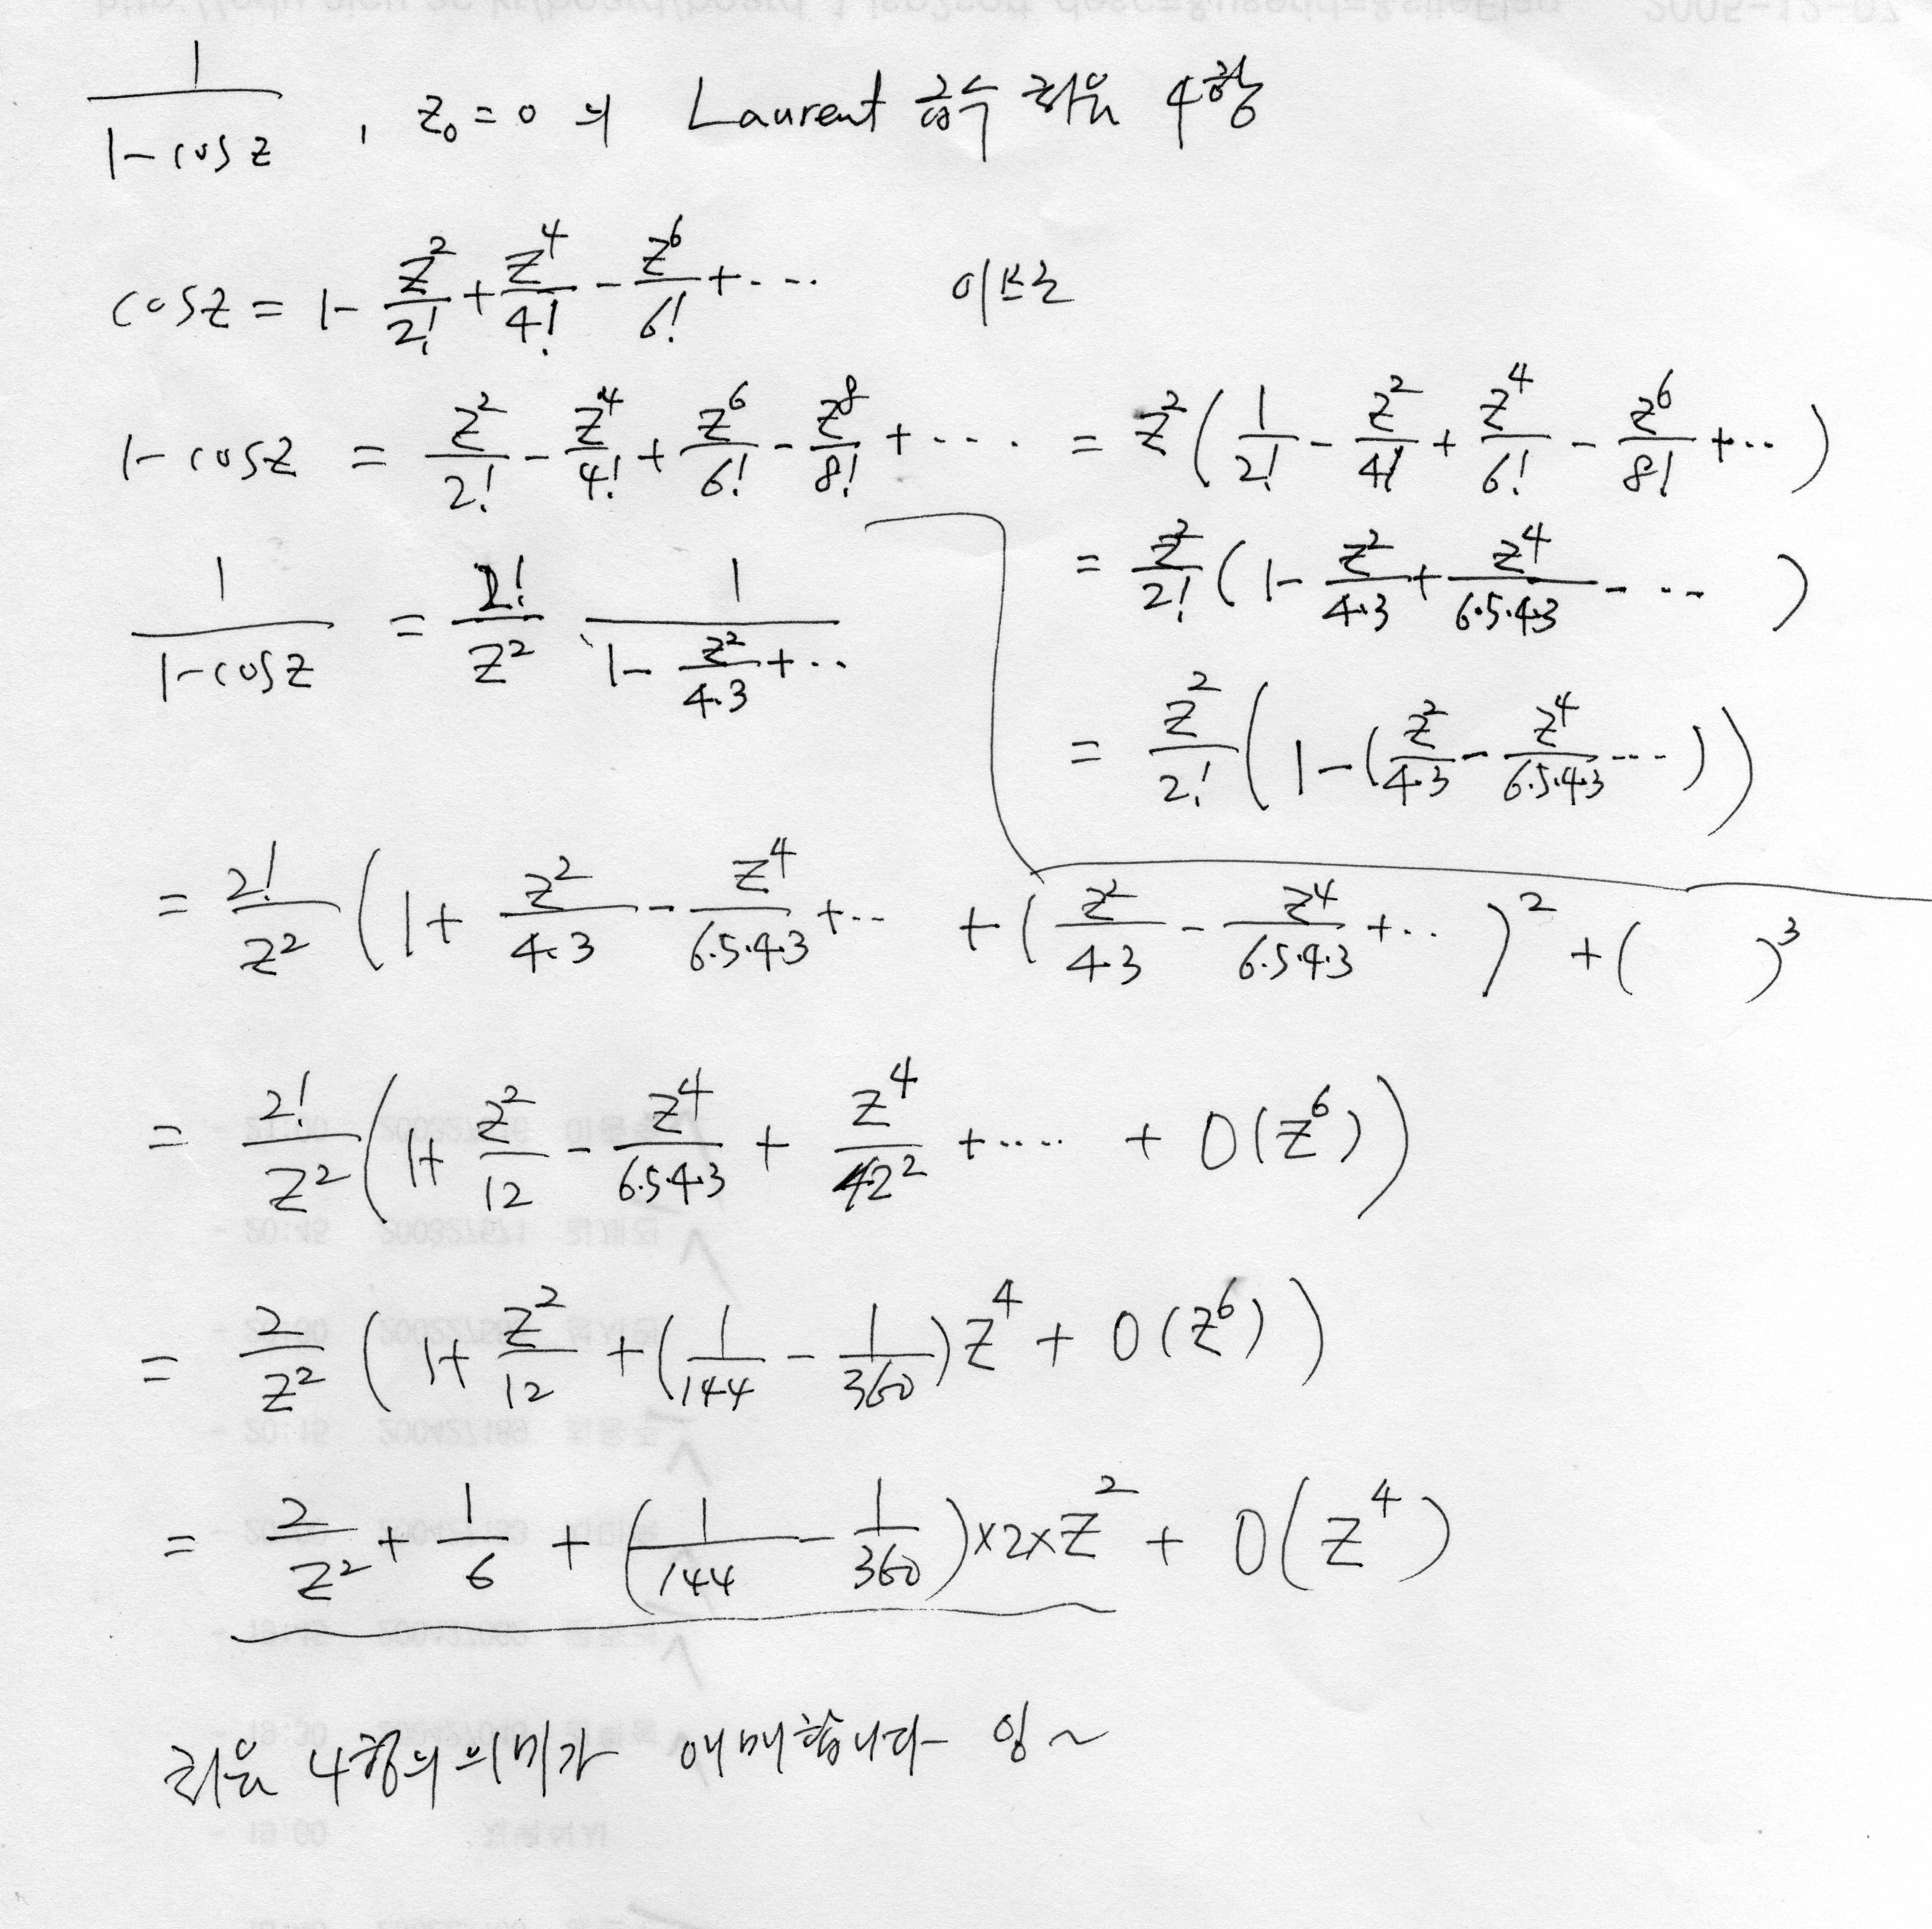 1/(1-cos z) , z₀=0 의 Laurent 급수 처음 4항
cosz = 1- z²/2! + z⁴/4! - z⁶/6! +··· 이므로
1-cosz = z²/2! - z⁴/4! + z⁶/6! - z⁸/8! + ···· = z²(1/2! - z²/4! + z⁴/6! - z⁶/8! +··)
= z²/2! (1- z²/4·3 + z⁴/6·5·4·3 - ··· )
1/(1-cosz) = 2!/z² 1/(1- z²/4·3 +··)
= z²/2! (1-(z²/4·3 - z⁴/6·5·4·3 ···))
= 2!/z² (1+ z²/4·3 - z⁴/6·5·4·3 +·· +(z²/4·3 - z⁴/6·5·4·3 +·· )² +( )³
= 2!/z² (1+ z²/12 - z⁴/6·5·4·3 + z⁴/12² +···· + O(z⁶))
= 2/z² (1+ z²/12 +(1/144 - 1/360)z⁴ + O(z⁶))
= 2/z² + 1/6 + (1/144 - 1/360)×2×z² + O(z⁴)
처음 4항의 의미가 애매합니다- 잉~